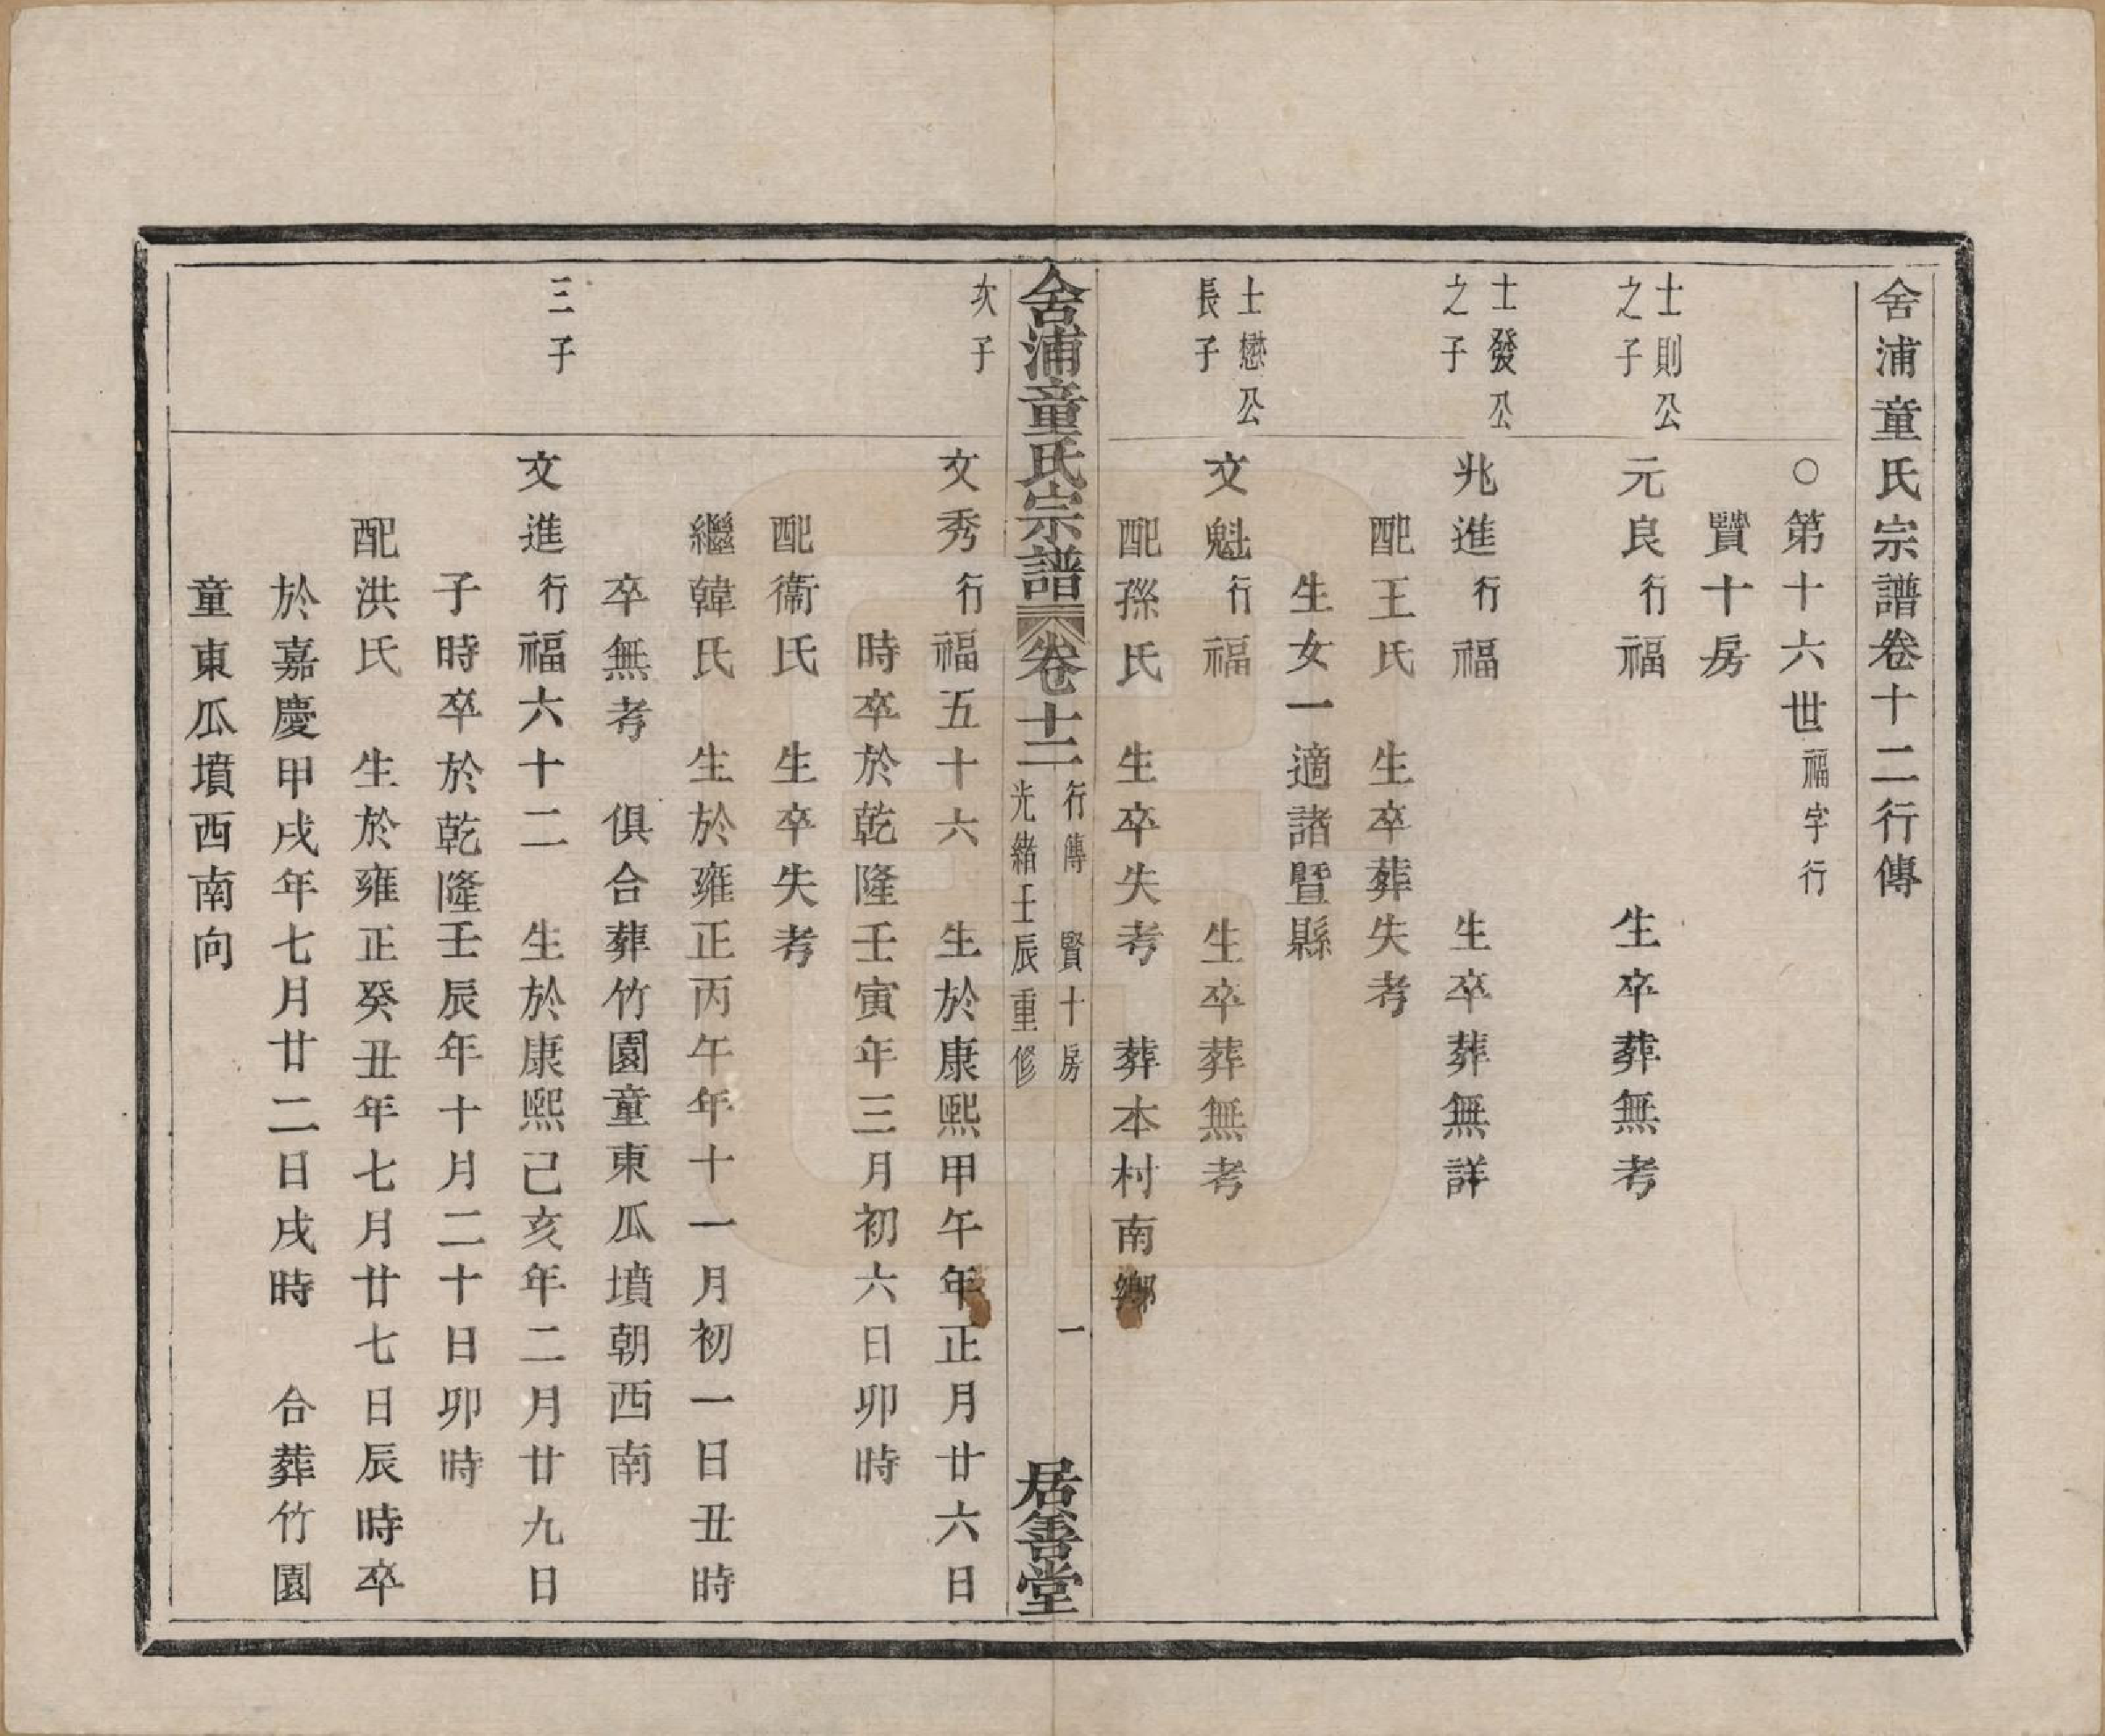 舍浦童氏宗譜卷十二行傳
○第十六世福字行
賢十房
士則公之子
元良行福 生卒葬無考
士發公之子
兆進行福 生卒葬無詳
配王氏 生卒葬失考
生女一適諸暨縣
士懋公長子
文魁行福 生卒葬無考
配孫氏 生卒失考 葬本村南鄉
舍浦童氏宗譜 卷十二 行傳 賢十房 一
光緒壬辰重修
居善堂
次子
文秀行福五十六 生於康熙甲午年正月廿六日
時卒於乾隆壬寅年三月初六日卯時
配衞氏 生卒失考
繼韓氏 生於雍正丙午年十一月初一日丑時
卒無考 俱合葬竹園童東瓜墳朝西南
三子
文進行福六十二 生於康熙己亥年二月廿九日
子時卒於乾隆壬辰年十月二十日卯時
配洪氏 生於雍正癸丑年七月廿七日辰時卒
於嘉慶甲戌年七月廿二日戌時 合葬竹園
童東瓜墳西南向